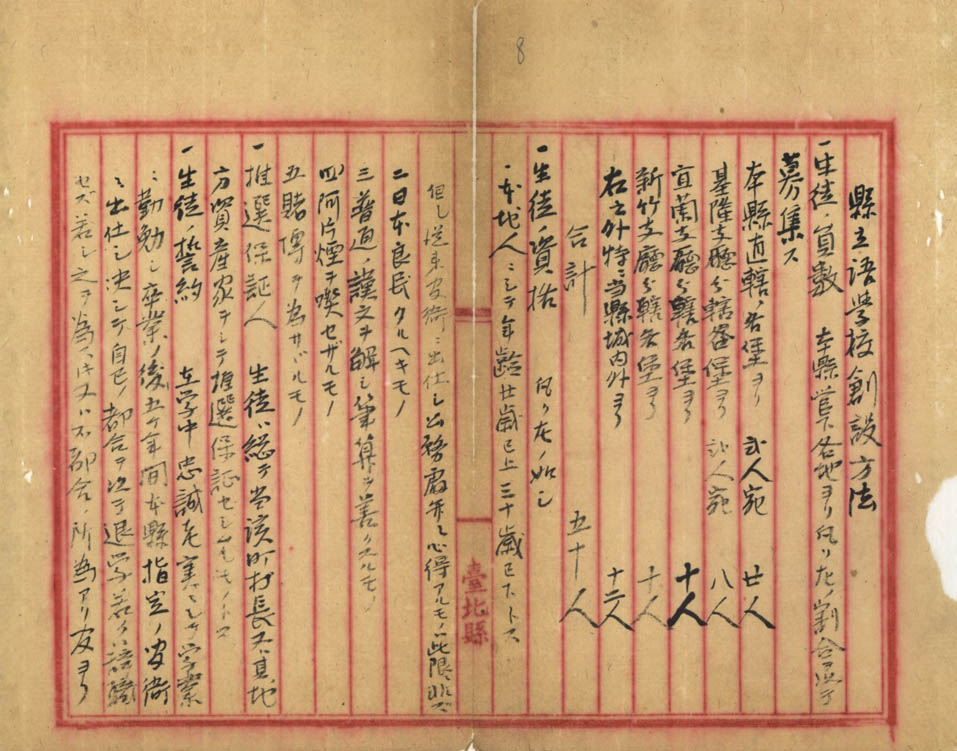 8
縣立語学校創設方法
一生徒ノ員数 本縣管下各地ヨリ凡ソ左ノ割合ヲ以テ
募集ス
本縣直轄各堡ヨリ 弐人宛 廿人
基隆支廳分轄各堡ヨリ 弐人宛 八人
宜蘭支廳分轄各堡ヨリ 十人
新竹支廳分轄各堡ヨリ 十人
右之外特ニ当縣城内外ヨリ 十二人
合計 五十人
一生徒ノ資格 凡ソ左ノ如シ
一本地人ニシテ年齢廿歳已上三十歳已下トス
但シ従来官衙ニ出仕シ公務ヲ心得アルモノハ此限ニ非ズ
二日本良民タルヘキモノ
三普通ノ漢文ヲ解シ筆算ヲ善クスルモノ
四阿片煙ヲ喫セザルモノ
五賭博ヲ為サザルモノ
一推選保証人 生徒ハ総テ当該町村長又ハ其地
方資産家ヲシテ推選保証セシムルモノトス
一生徒ノ誓約 在学中忠誠ヲ実ニシテ学業
ニ勤勉シ卒業ノ後五ケ年間本縣指定ノ官衙
ニ出仕シ決シテ自已ノ都合ヲ以テ退学若クハ辞職
セズ若シ之ヲ為スカ又ハ不都合ノ所為アリ官ヨリ
臺北縣